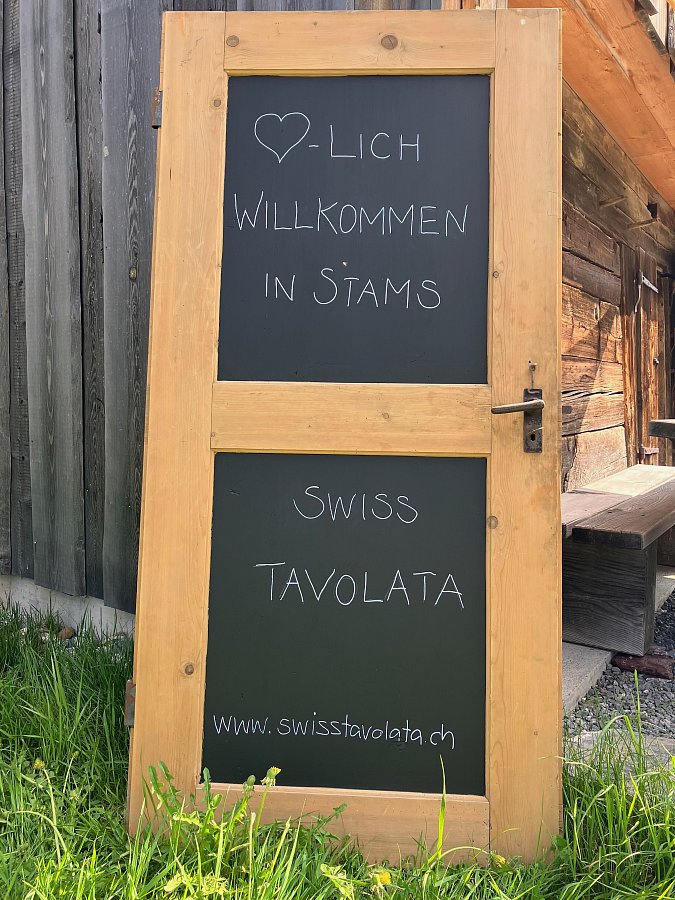 ♡-LICH
WILLKOMMEN
IN STAMS
SWISS
TAVOLATA
www.swisstavolata.ch